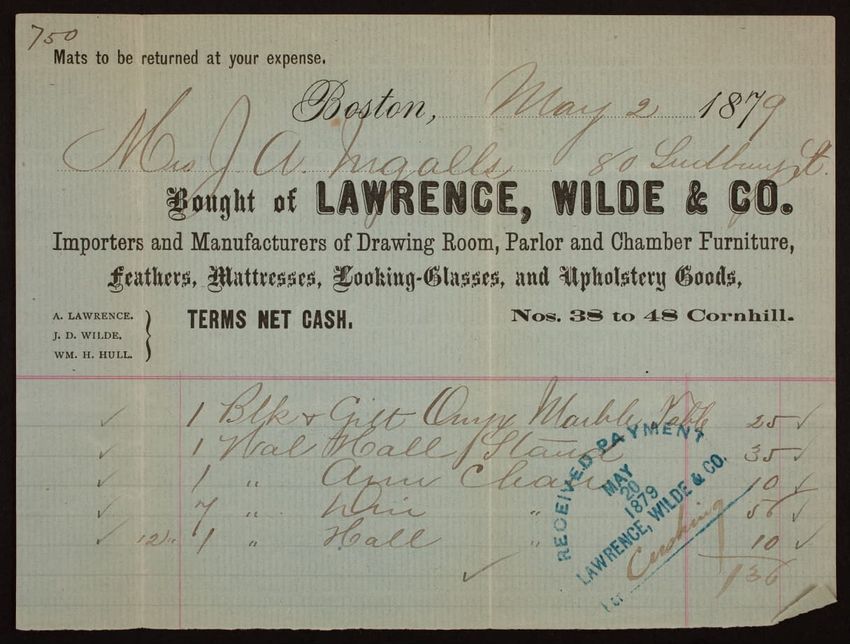 750
Mats to be returned at your expense.
Boston, May 2 1879
Mrs J A. Ingalls 80 Sudbury St.
Bought of LAWRENCE, WILDE & CO.
Importers and Manufacturers of Drawing Room, Parlor and Chamber Furniture,
Feathers, Mattresses, Looking-Glasses, and Upholstery Goods,
A. LAWRENCE.
J. D. WILDE.
WM. H. HULL.
TERMS NET CASH.
Nos. 38 to 48 Cornhill.
✓ 1 Blk & Gilt Onyx Marble Table 25 ✓
✓ 1 Wal Hall Stand 35 ✓
✓ 1 " Arm Chair 10 ✓
✓ 7 " Din " 56 ✓
✓ 12 " 1 " Hall " 10 ✓
✓ 136
RECEIVED PAYMENT
MAY
20
1879
LAWRENCE, WILDE & CO.
Per Cushing